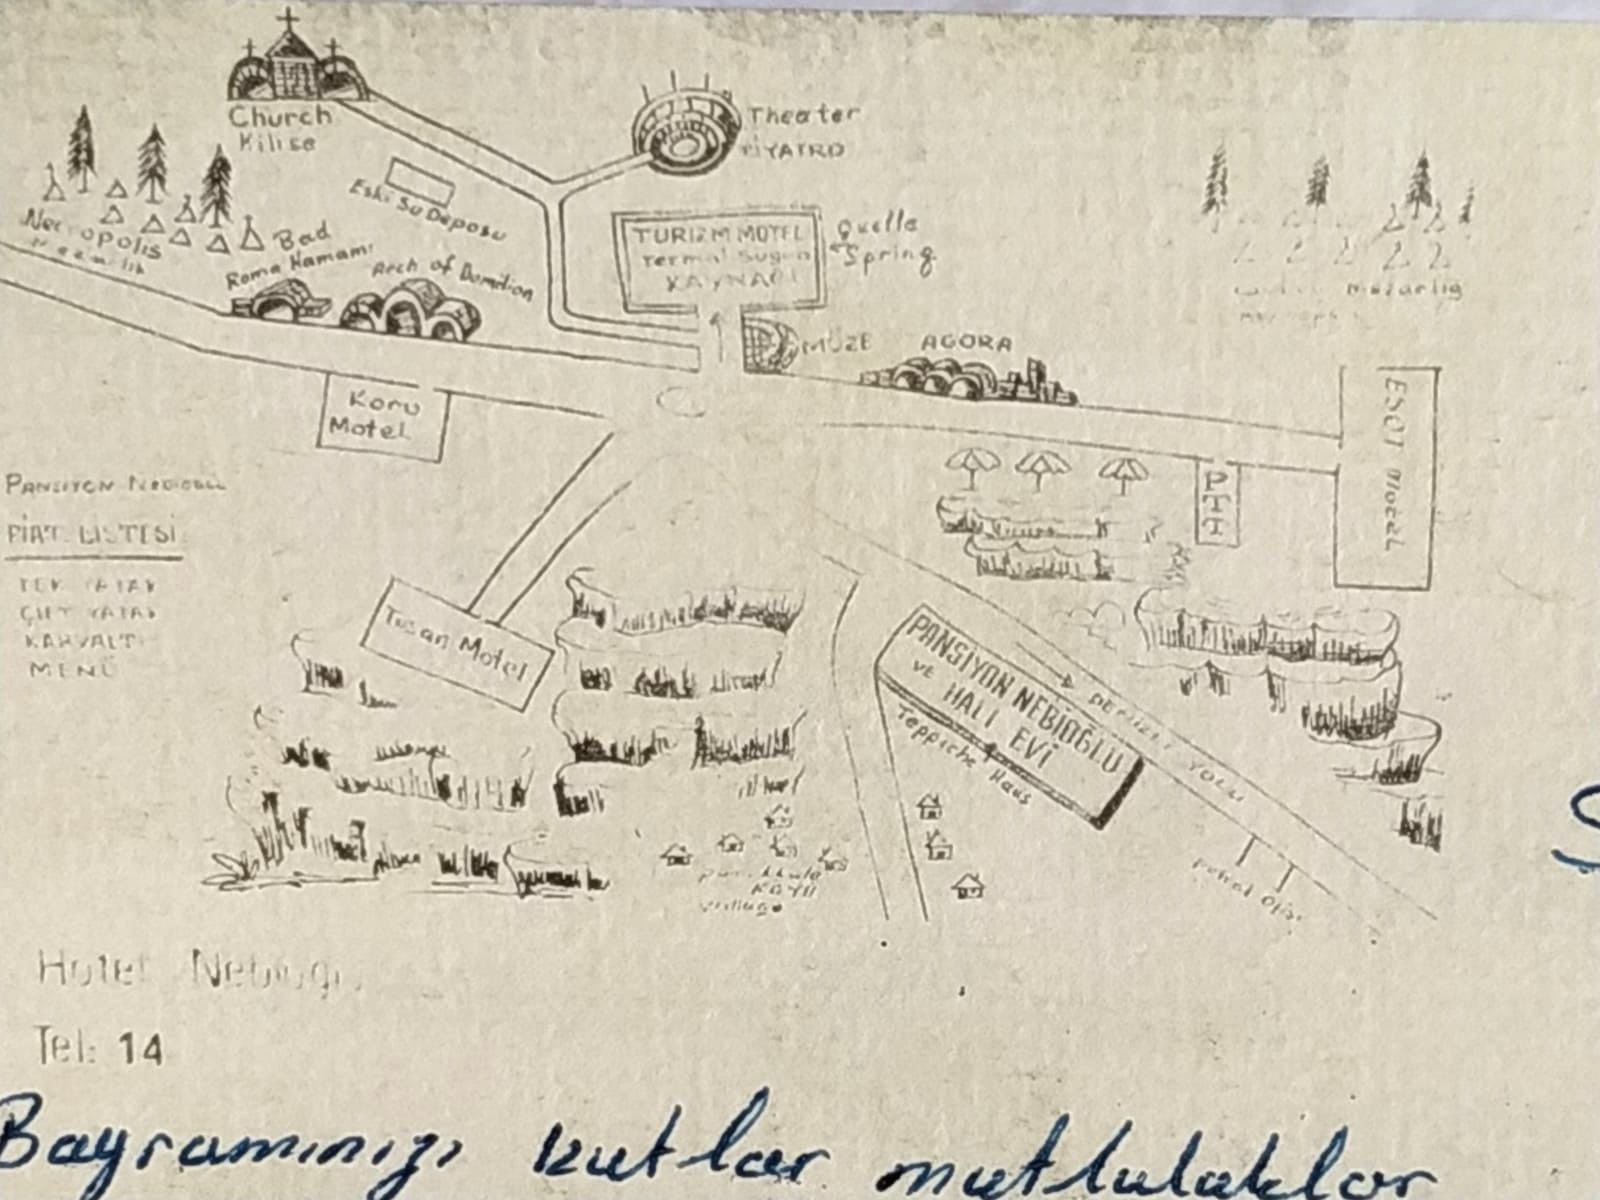 Church
Kilise
Theater
TİYATRO
Eski Su Deposu
Necropolis
Bad
Roma Hamamı
Arch of Domition
TURIZM MOTEL
Termal Suyun
KAYNAĞI
Quelle
Spring
mezarlıg
MÜZE
AGORA
Koru
Motel
ESOT Motel
PTT
PANSİYON NEBİOĞLU
FİAT LİSTESİ
TEK YATAK
ÇİFT YATAK
KAHVALTI
MENÜ
Tusan Motel
PANSİYON NEBİOĞLU
ve HALI EVİ
Teppiche Haus
DENİZLİ YOLU
Petrol Ofis
Pamukkale
KÖYÜ
Village
Hotel Nebioğlu
Tel: 14
Bayramınızı kutlar mutluluklar